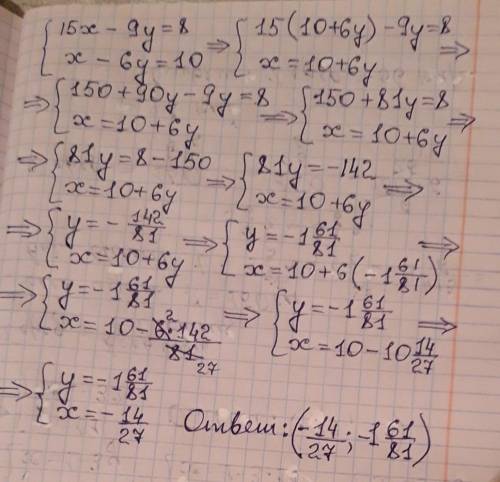 {15x - 9y = 8; x - 6y = 10 ⇒ {15(10+6y) - 9y = 8; x = 10+6y ⇒
⇒ {150 + 90y - 9y = 8; x = 10+6y ⇒ {150 + 81y = 8; x = 10+6y ⇒
⇒ {81y = 8 - 150; x = 10+6y ⇒ {81y = -142; x = 10+6y ⇒
⇒ {y = -142/81; x = 10+6y ⇒ {y = -1 61/81; x = 10+6(-1 61/81) ⇒
⇒ {y = -1 61/81; x = 10 - 6² · 142/81 27 ⇒ {y = -1 61/81; x = 10 - 10 14/27 ⇒
⇒ {y = -1 61/81; x = -14/27 Ответ: (-14/27; -1 61/81)